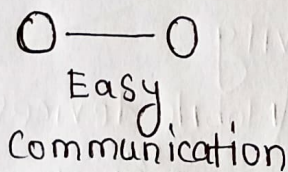 Easy
Communication